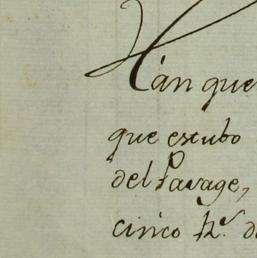 Hán que
que estubo
del Parage,
cinco h.^s d